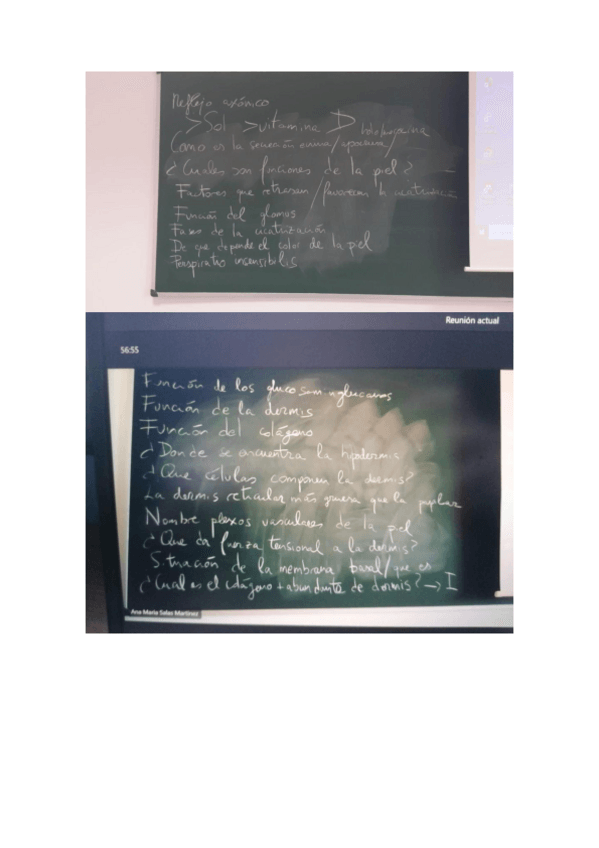 Reflejo axónico
>Sol >vitamina D
Como es la secreción ecrina/apocrina/holocrina
¿Cuales son funciones de la piel?
Factores que retrasan/favorecen la cicatrización
Función del glomus
Fases de la cicatrización
De que depende el color de la piel
Perspiratio insensibilis
Reunión actual
56:55
Función de los glucosaminoglucanos
Función de la dermis
Función del colágeno
¿Donde se encuentra la hipodermis
¿Que células componen la dermis?
La dermis reticular más gruesa que la papilar
Nombre plexos vasculares de la piel
¿Que da fuerza tensional a la dermis?
Situación de la membrana basal/que es
¿Cual es el colágeno + abundante de dermis? → I
Ana Maria Salas Martinez